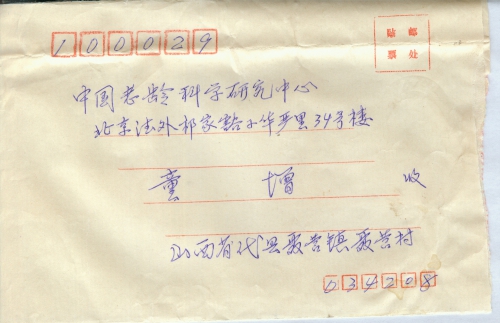 100029
贴 邮
票 处
中国老龄科学研究中心
北京德外祁家豁子华严里39号楼
童 增 收
山西省代县聂营镇聂营村
034208